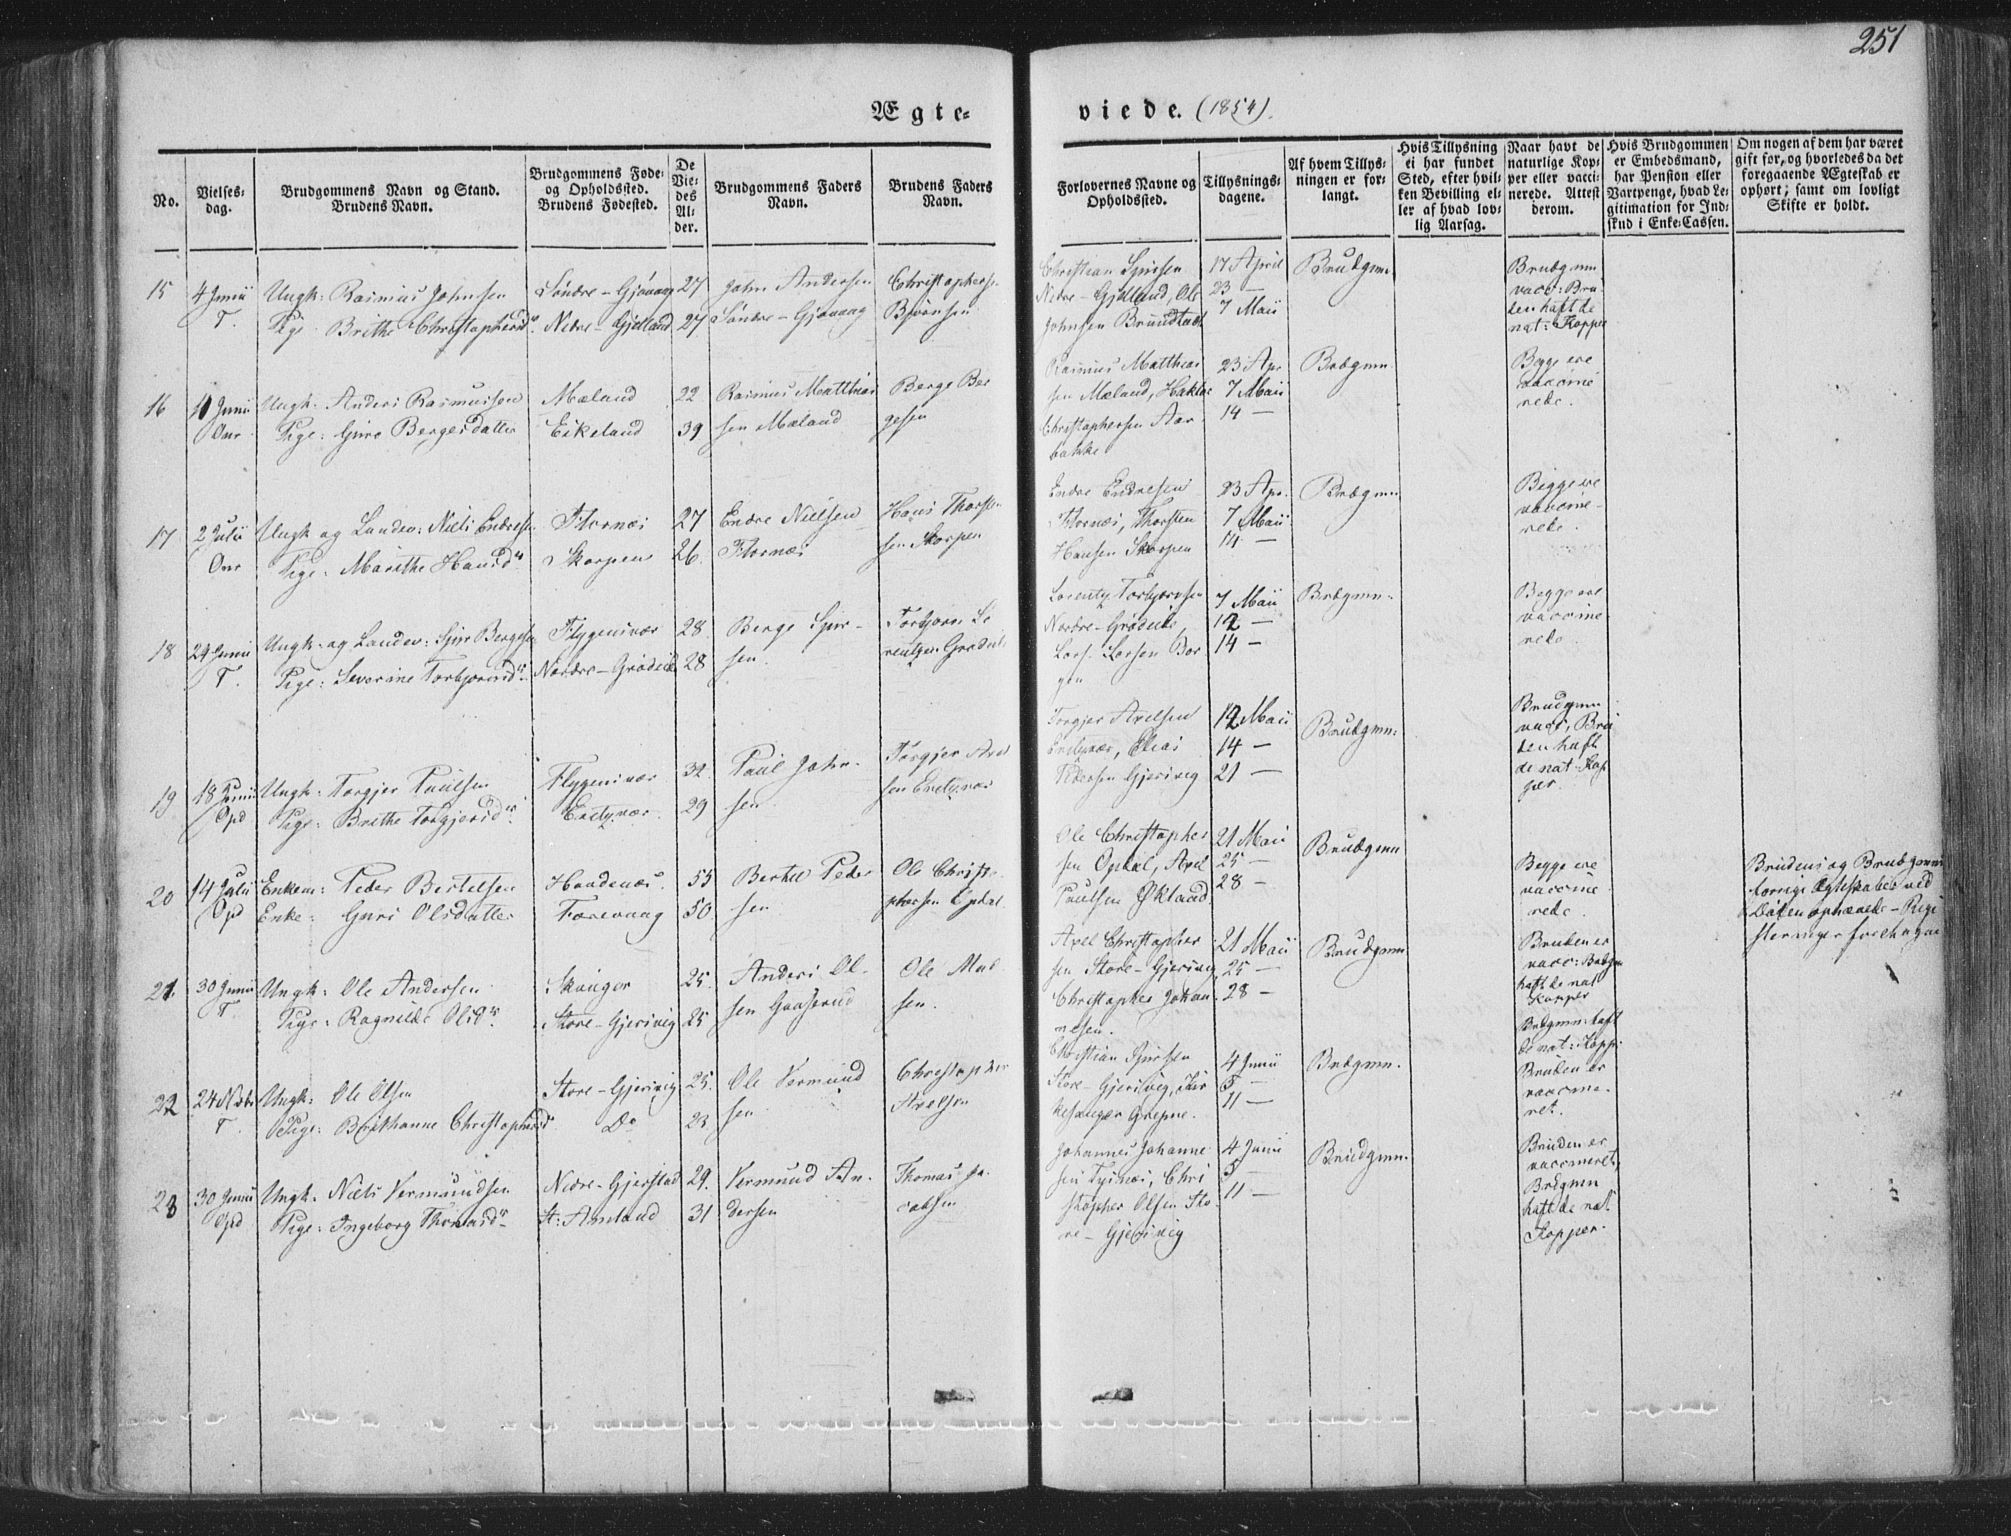 251
Ægte-
viede. (1854).
No.
Vielses-
dag.
Brudgommens Navn og Stand.
Brudens Navn.
Brudgommens Føde-
og Opholdssted.
Brudens Fødested.
De
Vie-
des
Al-
der.
Brudgommens Faders
Navn.
Brudens Faders
Navn.
Forlovernes Navne og
Opholdssted.
Tillysnings-
dagene.
Af hvem Tillys-
ningen er for-
langt.
Hvis Tillysning
ei har fundet
Sted, efter hvil-
ken Bevilling el-
ler af hvad lov-
lig Aarsag.
Naar havt de
naturlige Kop-
per eller vacci-
nerede. Attest
derom.
Hvis Brudgommen
er Embedsmand,
har Pension eller
Vartpenge, hvad Le-
gitimation for Ind-
skud i Enke-Cassen.
Om nogen af dem har været
gift før, og hvorledes da det
foregaaende Ægteskab er
ophørt; samt om lovligt
Skifte er holdt.
15
4 Junii
T.
Ungk: Rasmus Johnsen
Pige Brithe Christophersd.
Søndre-Gjøvaag
Nedre-Gjelland
27
27
John Andersen
Søndre-Gjøvaag
Christophers
Bjørnsen
Christian Sjursen
Nedre-Gjelland, Ole
Johnsen Brundtædt
17 April
23 —
7 Maii
Brudgmn
Brudgmn
vacc: Bru-
den haft de
nat: Kopper
16
11 Junii
Onr
Ungk: Anders Rasmussen
Pige: Guro Bergesdatter
Mæland
Eikeland
22
39
Rasmus Matthias
sen Mæland
Berge Ber
gesen
Rasmus Matthias
sen Mæland,
Christophersen Aar
bakke
23 Apr
7 Maii
14 —
Brdgmn
Begge ere
vaccine
rede.
17
2 Julii
Onr
Ungk og Landev: Niels Endresen
Pige: Marithe Hansd.
Flornæs
Skorpen
27
26.
Endre Nielsen
Flornæs
Hans Thorste
sen Skorpen
Endre Endresen
Flornæs, Thorsten
Hansen Skorpen
23 Apr.
7 Maii
14 —
Brdgmn
Begge ere
vaccine-
rede.
18
29 Junii
T.
Ungk: og Landev: Sjur Bergesen
Pige: Severine Torbjørnsd.
Flygensvær
Nordre-Grødeide
28
28
Berge Sjur-
sen.
Torbjørn Lo
rentzen Grødeide
Lorentz Torbjørnsen
Nordre-Grødeide,
Lars Larsen Bor
gen
7 Maii
12 —
14 —
Brdgmn.
Begge ere
vaccine
rede.
19
18 Junii
Opd
Ungk: Torgjer Paulsen
Pige: Brithe Torgjersd.
Flygensvær
Enetzvær.
32.
29
Paul John-
sen.
Torgjer Axel
sen Enetzvær
Torgjer Axelsen
Enetzvær, Elias
Pedersen Gjersvig
12 Maii
14 —
21 —
Brudgmn:
Brudgmn
vacc, Bru
den haft
de nat. Kop
per.
20
14 Julii
Opd
Enkem: Peder Bertelsen
Enke: Guri Olsdatter
Haadenæs.
Færevaag
55
50.
Bertel Peder
sen
Ole Christo
phersen Opdal.
Ole Christopher
sen Opdal, Axel
Paulsen Økland
21 Maii
25 —
28 —
Brudgmn
Begge ere
vaccine
rede.
Brudens og Brudgmns
forrige Ægteskaber ved
Døden ophævede - Regi
streringer forebragne
21.
30 Junii
T.
Ungk: Ole Andersen
Pige: Ragnilde Olsd.
Skouger
Store-Gjersvig
25.
25
Anders Ol-
sen Gaaserud
Ole Mad
sen.
Axel Christopher
sen Store-Gjersvig,
Christopher Johan
nesen.
21 Maii
25 —
28 —
Brudgmn
Bruden er
vacc: Brdgm
haft de nat
Kopper
22
24
T
Ungk: Ole Olsen
Pige: Brithanne Christophersd
Store-Gjersvig
Do
25.
23
Ole Vermund
sen
Christopher
Axelsen
Christian Sjursen
Store-Gjersvig, Kir
kesanger Grepne.
4 Junii
5 —
11 —
Brdgmn.
Brdgmn: haft
de nat: Kopp:
Bruden er
vaccine-
ret.
23
30 Junii
Opd
Ungk: Niels Vermundsen
Pige: Ingeborg Thomasd.
Nedre-Gjerstad
St: Amland
29.
31
Vermund An-
dersen
Thomas Ja-
cobsen
Johannes Johanne
sen Tysnæs, Chri
stopher Olsen Sto-
re-Gjersvig
4 Junii
5 —
11 —
Brudgmn.
Bruden er
vaccineret,
Brdgmn
haft de nat.
Kopper.